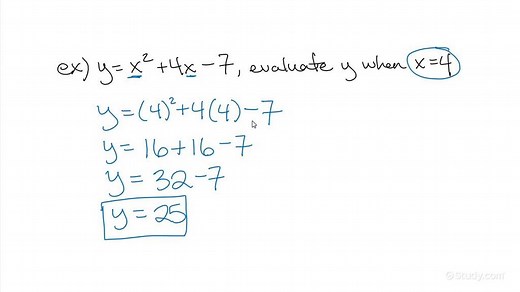 ex) y = x² + 4x - 7, evaluate y when x=4
y = (4)² + 4(4) - 7
y = 16 + 16 - 7
y = 32 - 7
y = 25
©Study.com